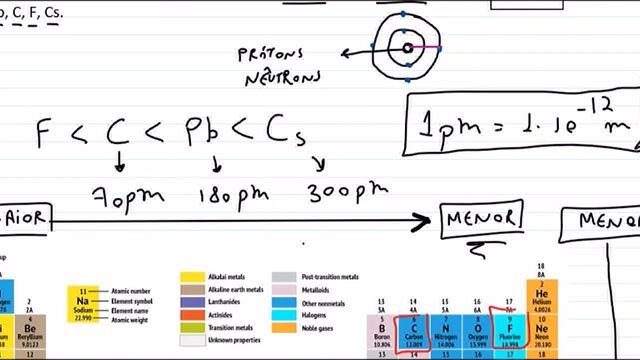 b, C, F, Cs.
PRÓTONS
NÊUTRONS
1pm = 1.1e^-12 m
F < C < Pb < Cs
70pm 180pm 300pm
AiOR MENOR MENOR
up
11 Atomic number
Na Element symbol
Sodium Element name
22.990 Atomic weight
Alkalai metals
Alkaline earth metals
Lanthanides
Actinides
Transition metals
Unknown properties
Post-transition metals
Metalloids
Other nonmetals
Halogens
Noble gases
2
2A
4
Be
Beryllium
9.0122
13 14 15 16 17 18
3A 4A 5A 6A 7A 8A
2
He
Helium
4.0026
5 6 7 8 9 10
B C N O F Ne
Boron Carbon Nitrogen Oxygen Fluorine Neon
10.806 12.009 14.006 15.999 18.998 20.180